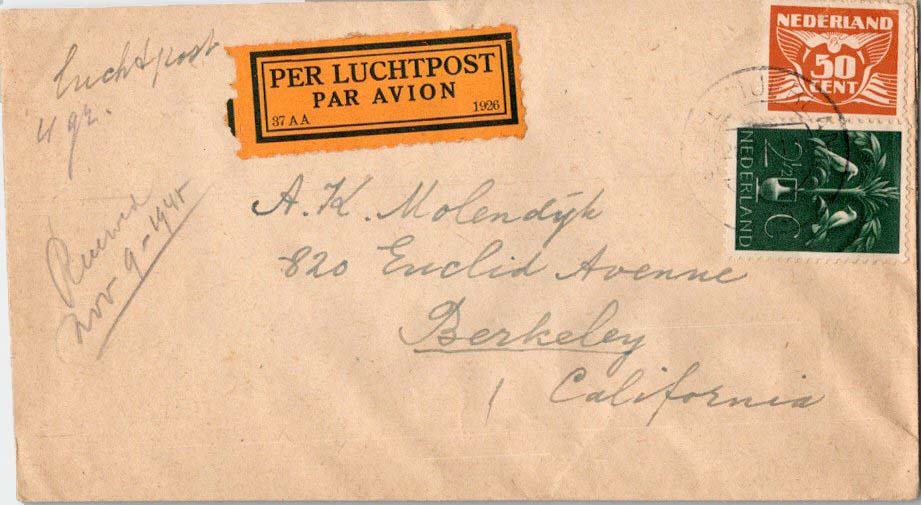 Luchtpost
4 gr.
PER LUCHTPOST
PAR AVION
37 AA 1926
NEDERLAND
50
CENT
2½ C
NEDERLAND
Received
Nov 9-1945
A. K. Molendÿk
820 Euclid Avenue
Berkeley
California